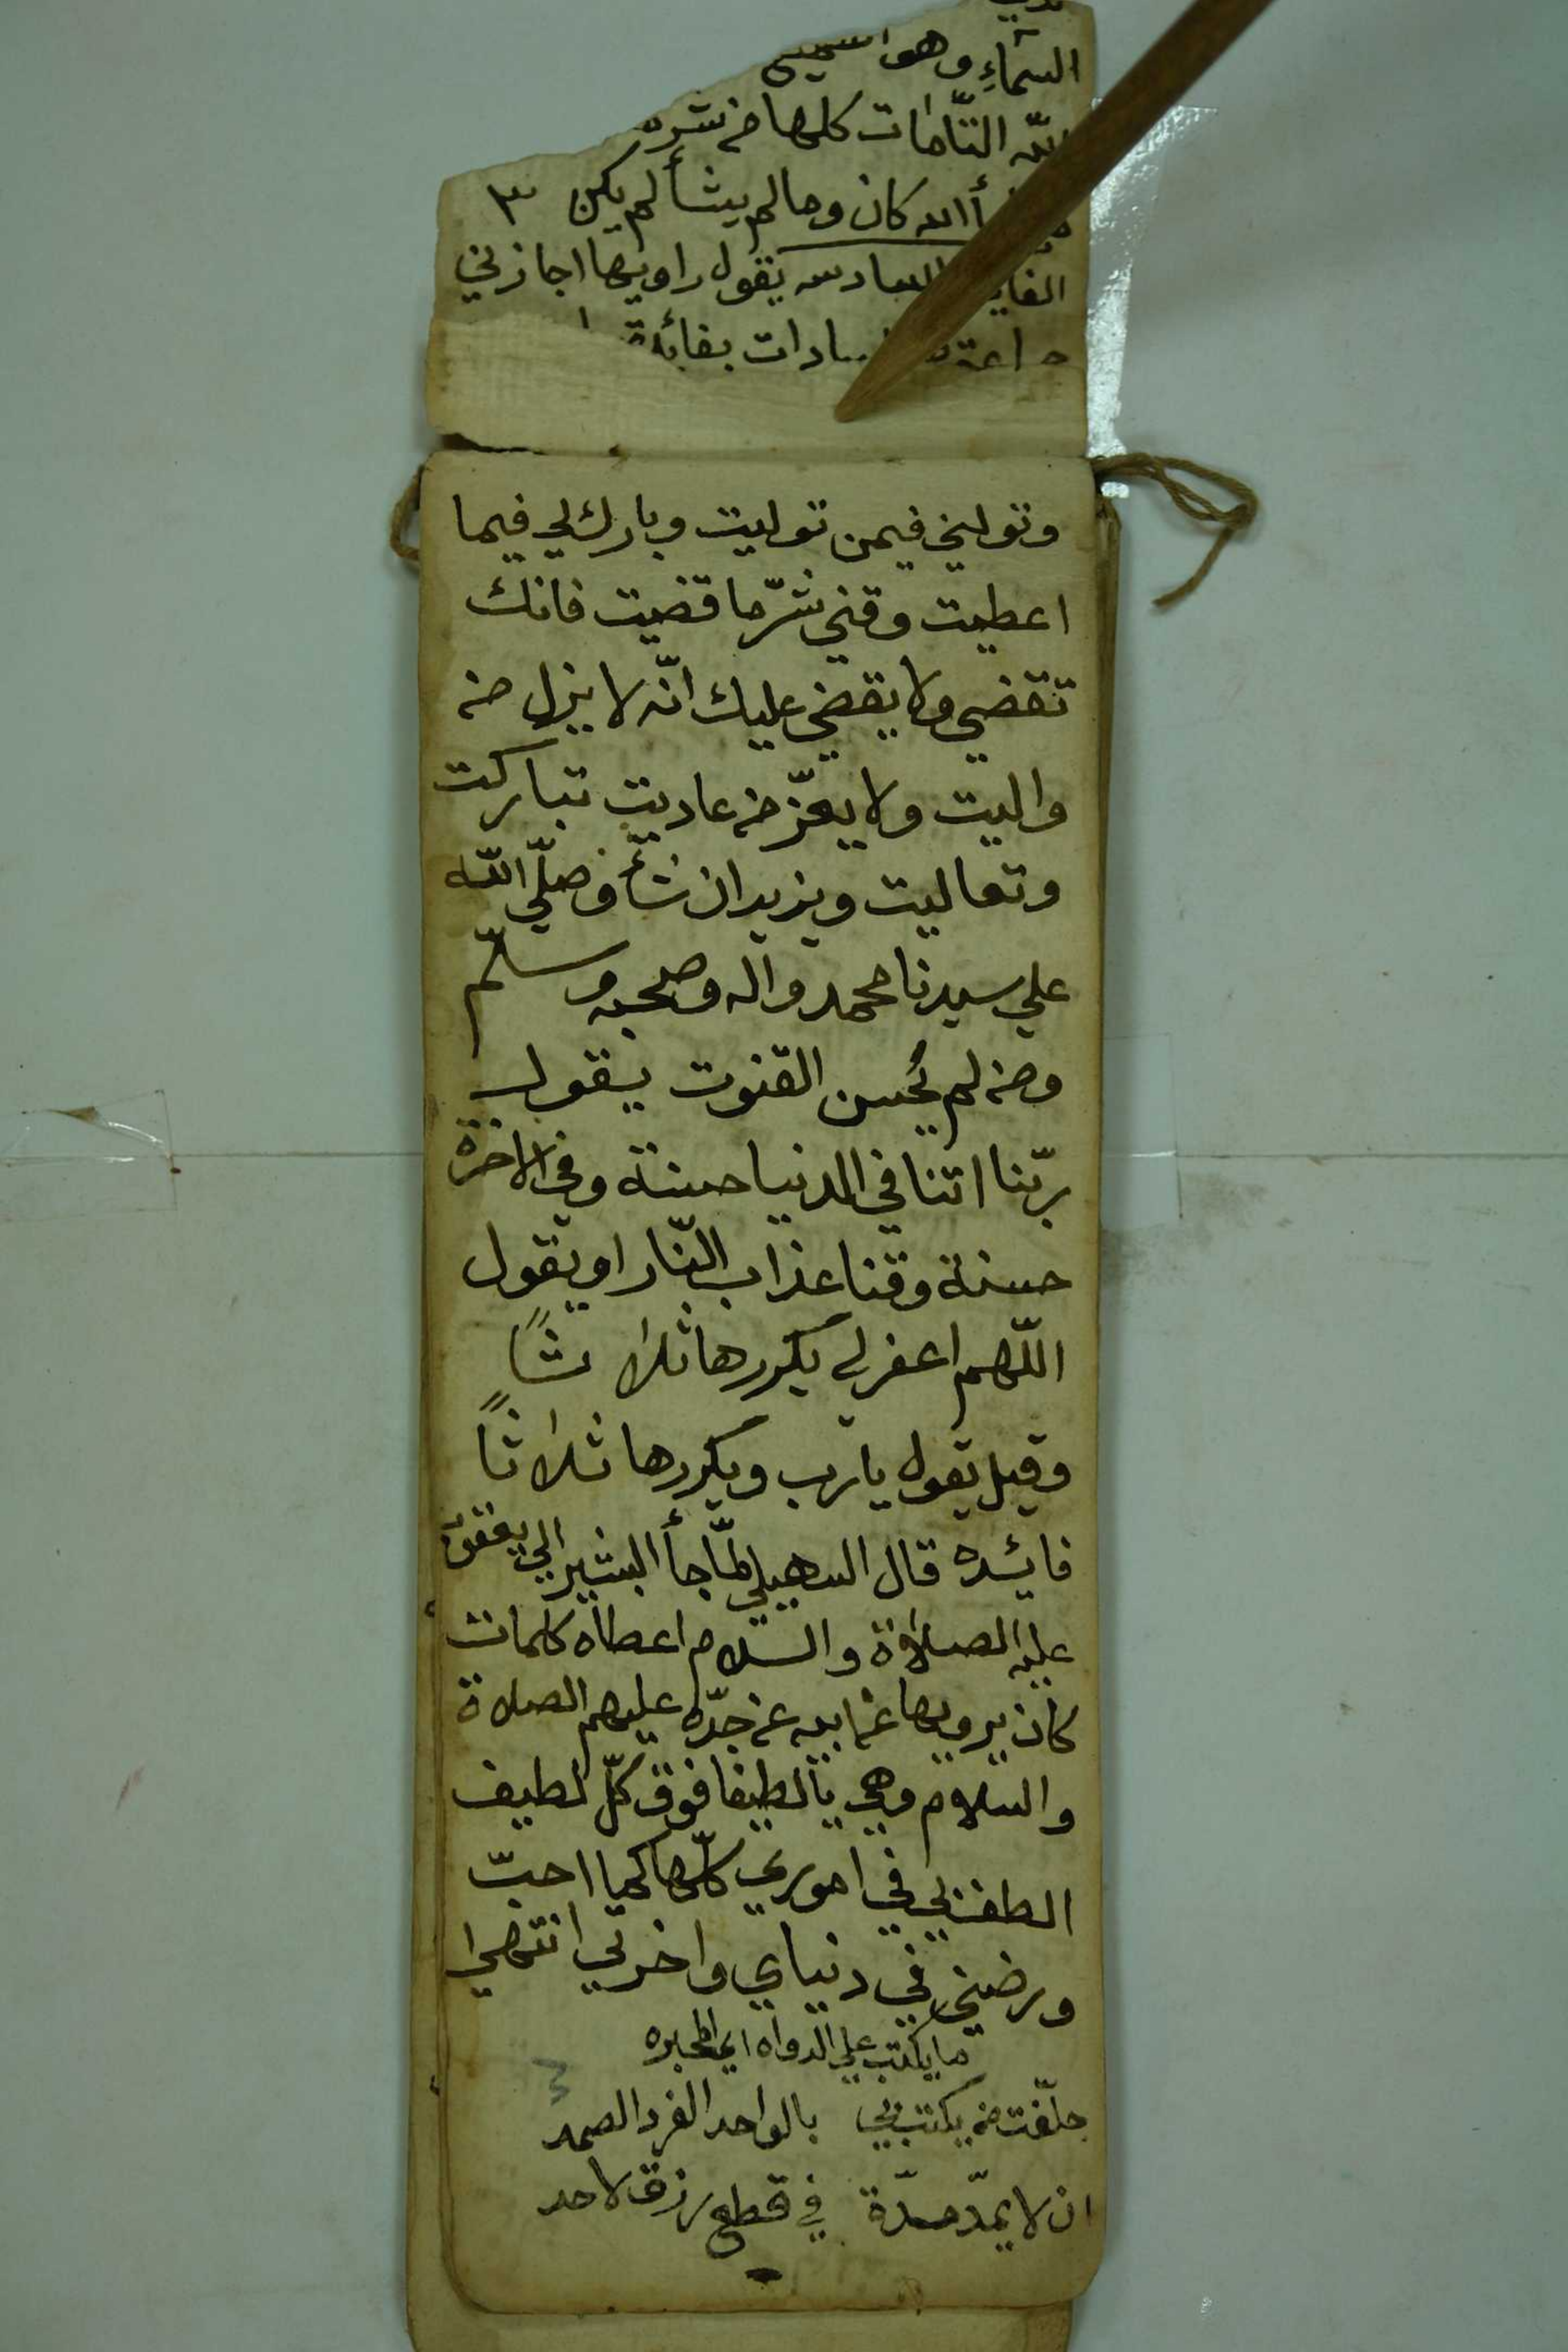 السّمآءِ وهو السميع
الله التّامات كلها من شر
أالله كان وما لم يشأ لم يكن ٣
السادسه يقول راويها اجازني
السادات بفائدة
وتولني فيمن توليت وبارك لي فيما
اعطيت وقني شرّ ما قضيت فانك
تقضي ولا يقضي عليك انّه لا يذل من
واليت ولا يعزّ من عاديت تباركت
وتعاليت ويزيد ان شأ وصلّي اللّه
علي سيدنا محمد واله وصحبه وسلّم
ومن لم يُحسن القنوت يقول
ربّنا اتنا في الدنيا حسنة وفي الاخرة
حسنة وقنا عذاب النّار او يقول
اللّهم اغفر لي يكررها ثلاثاً
وقيل يقول يا رب ويكررها ثلاثاً
فائده قال السهيلي لمّا جأ البشير الي يعقوب
عليه الصلاة والسلام اعطاه كلمات
كان يرويها عن ابيه عن جدّه عليهم الصلاة
والسلام وهي يا لطيفا فوق كلّ لطيف
الطف بي في اموري كلّها كما احبّ
ورضني في دنياي واخرتي انتهي
ما يكتب علي الدواه اي المحبره
حلّفت من يكتب بي بالواحد الفرد الصمد
ان لا يمدّ مدّة في قطع رزق لاحد